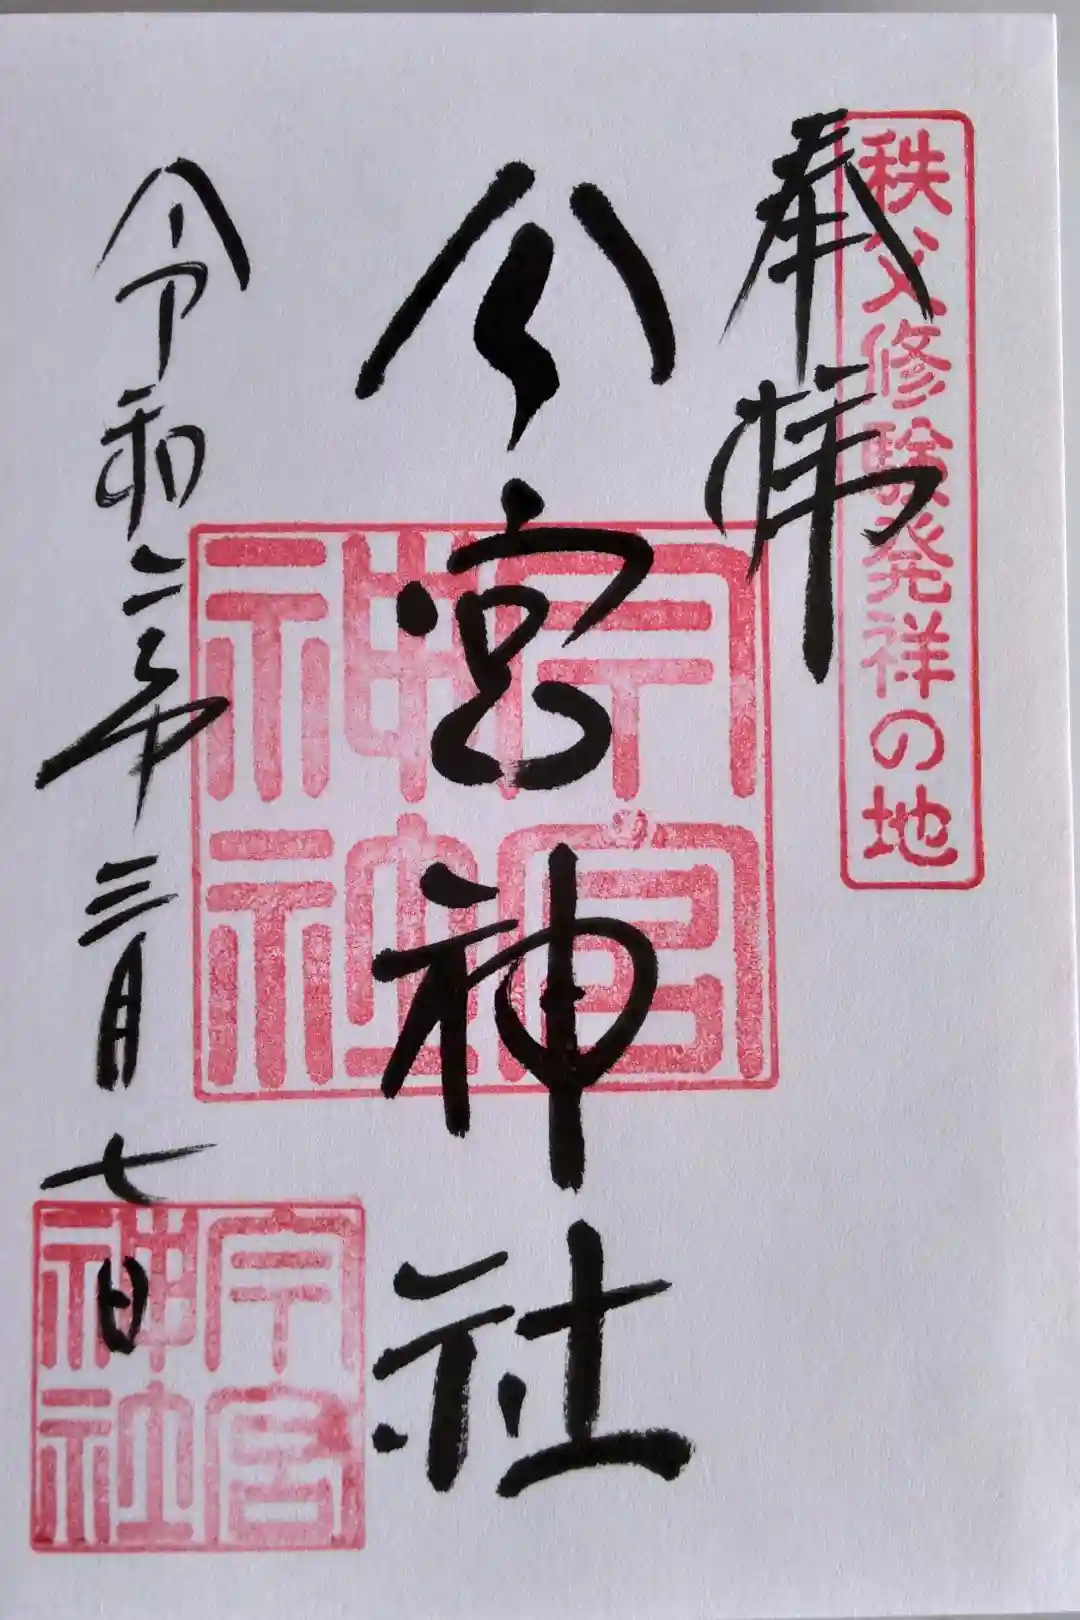 秩父修験発祥の地
奉拝
今宮神社
令和二年三月七日
今宮神社
今宮神社